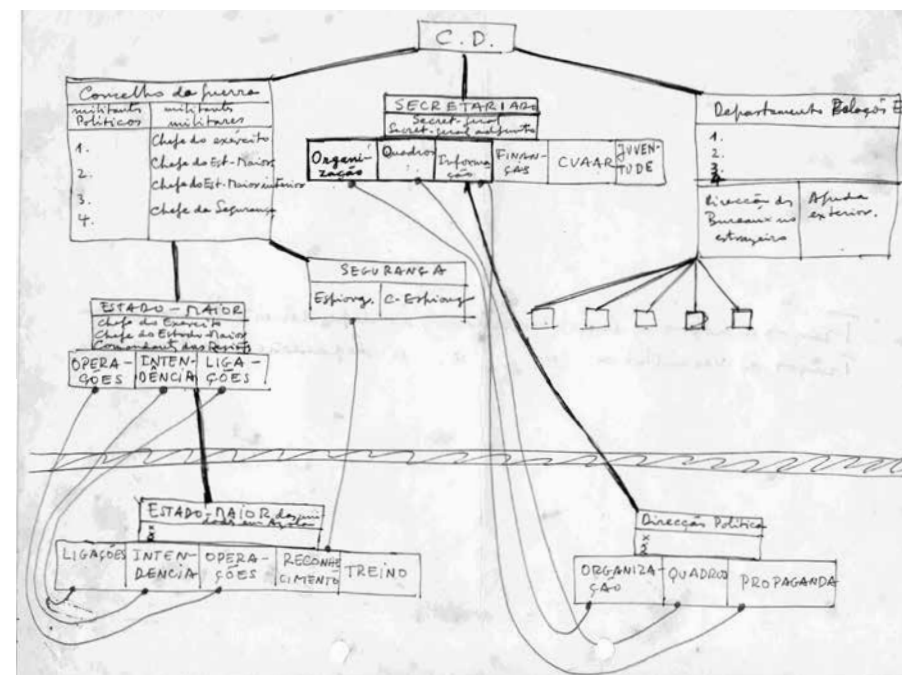 C. D.
Concelho da guerra
militants Politicos
militants militares
1.
2.
3.
4.
Chefe do exército
Chefe do Est-Maior
Chefe do Est-Maior interior
Chefe da Segurança
SECRETARIADO
Secret-geral
Secret-geral adjunto
Organi-
zação
Quadros
Informa-
ção
FINAN-
ÇAS
CVAAR
JUVEN-
TUDE
Departamento Relações E
1.
2.
3.
4
Direcção dos
Bureaux no
estrangeiro
Ajuda
exterior.
SEGURANÇA
Espionag.
C-Espionag
ESTADO-MAIOR
Chefe do Exercito
Chefe do Estado-Maior
Comandants das Regiões
OPERA-
ÇOES
INTEN-
DÊNCIA
LIGA-
ÇÕES
ESTADO-MAIOR
em Angola
LIGAÇÕES
INTEN-
DENCIA
OPERA-
ÇÕES
RECONHE
CIMENTO
TREINO
Direcção Politica
ORGANIZA-
ÇÃO
QUADROS
PROPAGANDA